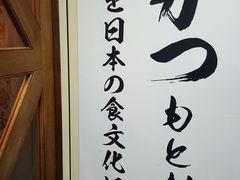 かつもと
を日本の食文化